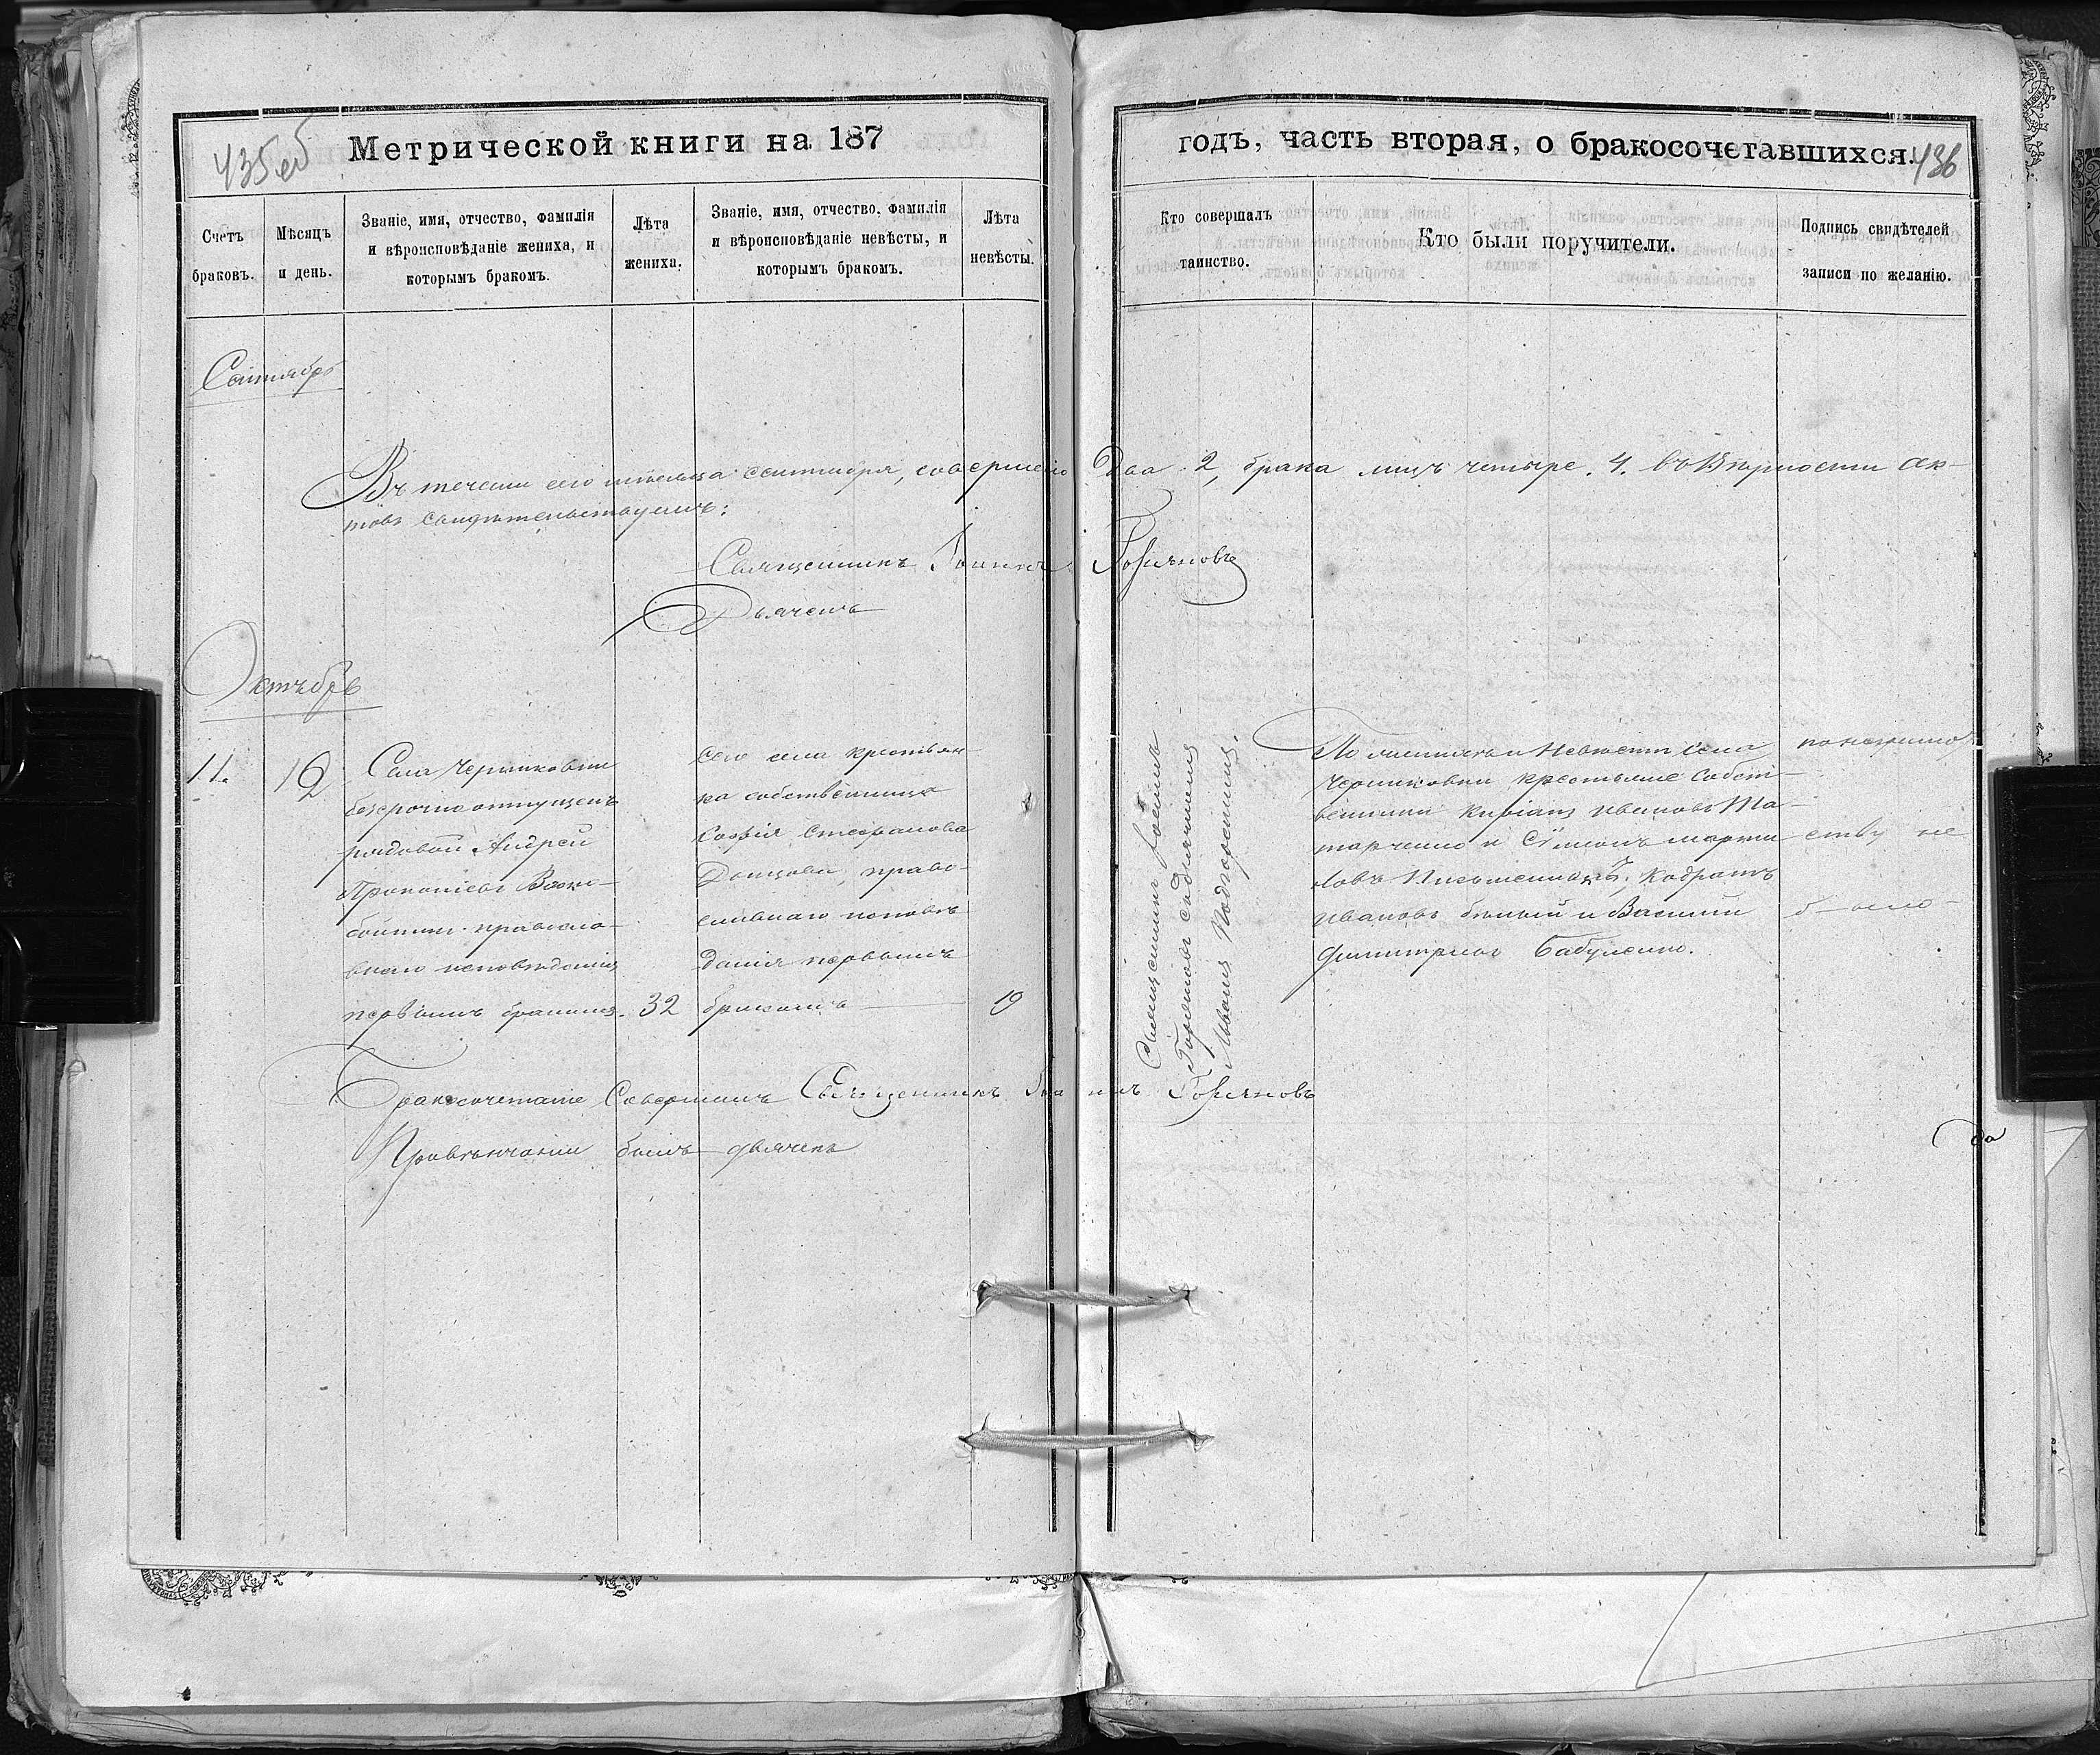 435об
Метрической книги на 187
годъ, часть вторая, о бракосочетавшихся.
436
Счетъ
браковъ.
Мѣсяцъ
и день.
Званіе, имя, отчество, фамилія
и вѣроисповѣданіе жениха, и
которымъ бракомъ.
Лѣта
жениха.
Званіе, имя, отчество, фамилія
и вѣроисповѣданіе невѣсты, и
которымъ бракомъ.
Лѣта
невѣсты.
Кто совершалъ
таинство.
Кто были поручители.
Подпись свидѣтелей
записи по желанію.
Сентябрь
Въ течении сего месяца сентября, совершено Два 2, брака лицъ четыре. 4. въ вѣрности ак-
товъ свидѣтельствуемъ:
Священникъ Іоаннъ Горяновъ
Дьячекъ
Октябрь
11.
Села Черниковки
безсрочно отпущенъ
рядовой Андрей
Прокопіевъ
правосла-
внаго исповѣданія
первымъ бракомъ.
32
Сего села крестьян-
ка собственница
Софія Стефанова
Донцова, право-
славнаго исповѣ
данія первымъ
бракомъ
19
Священникъ Іоаннъ
Горяновъ съ дьячкомъ
Иваномъ
По женихѣ и невѣстѣ села
Черниковки крестьяне собст-
венники Ивановъ Та-
и Симонъ марти
новъ Кодратъ
Ивановъ и Василий
Димитриевъ Бабуленко.
ству не
было
Бракосочетаніе Совершилъ Священникъ Іоаннъ Горяновъ
При вѣнчаніи былъ дьячекъ